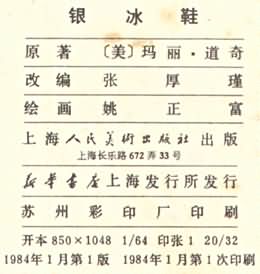 银冰鞋
原著〔美〕玛丽·道奇
改编张厚瑾
绘画姚正富
上海人民美术出版社出版
上海长乐路672弄33号
新华书店上海发行所发行
苏州彩印厂印刷
开本850×1048 1/64 印张1 20/32
1984年1月第1版 1984年1月第1次印刷